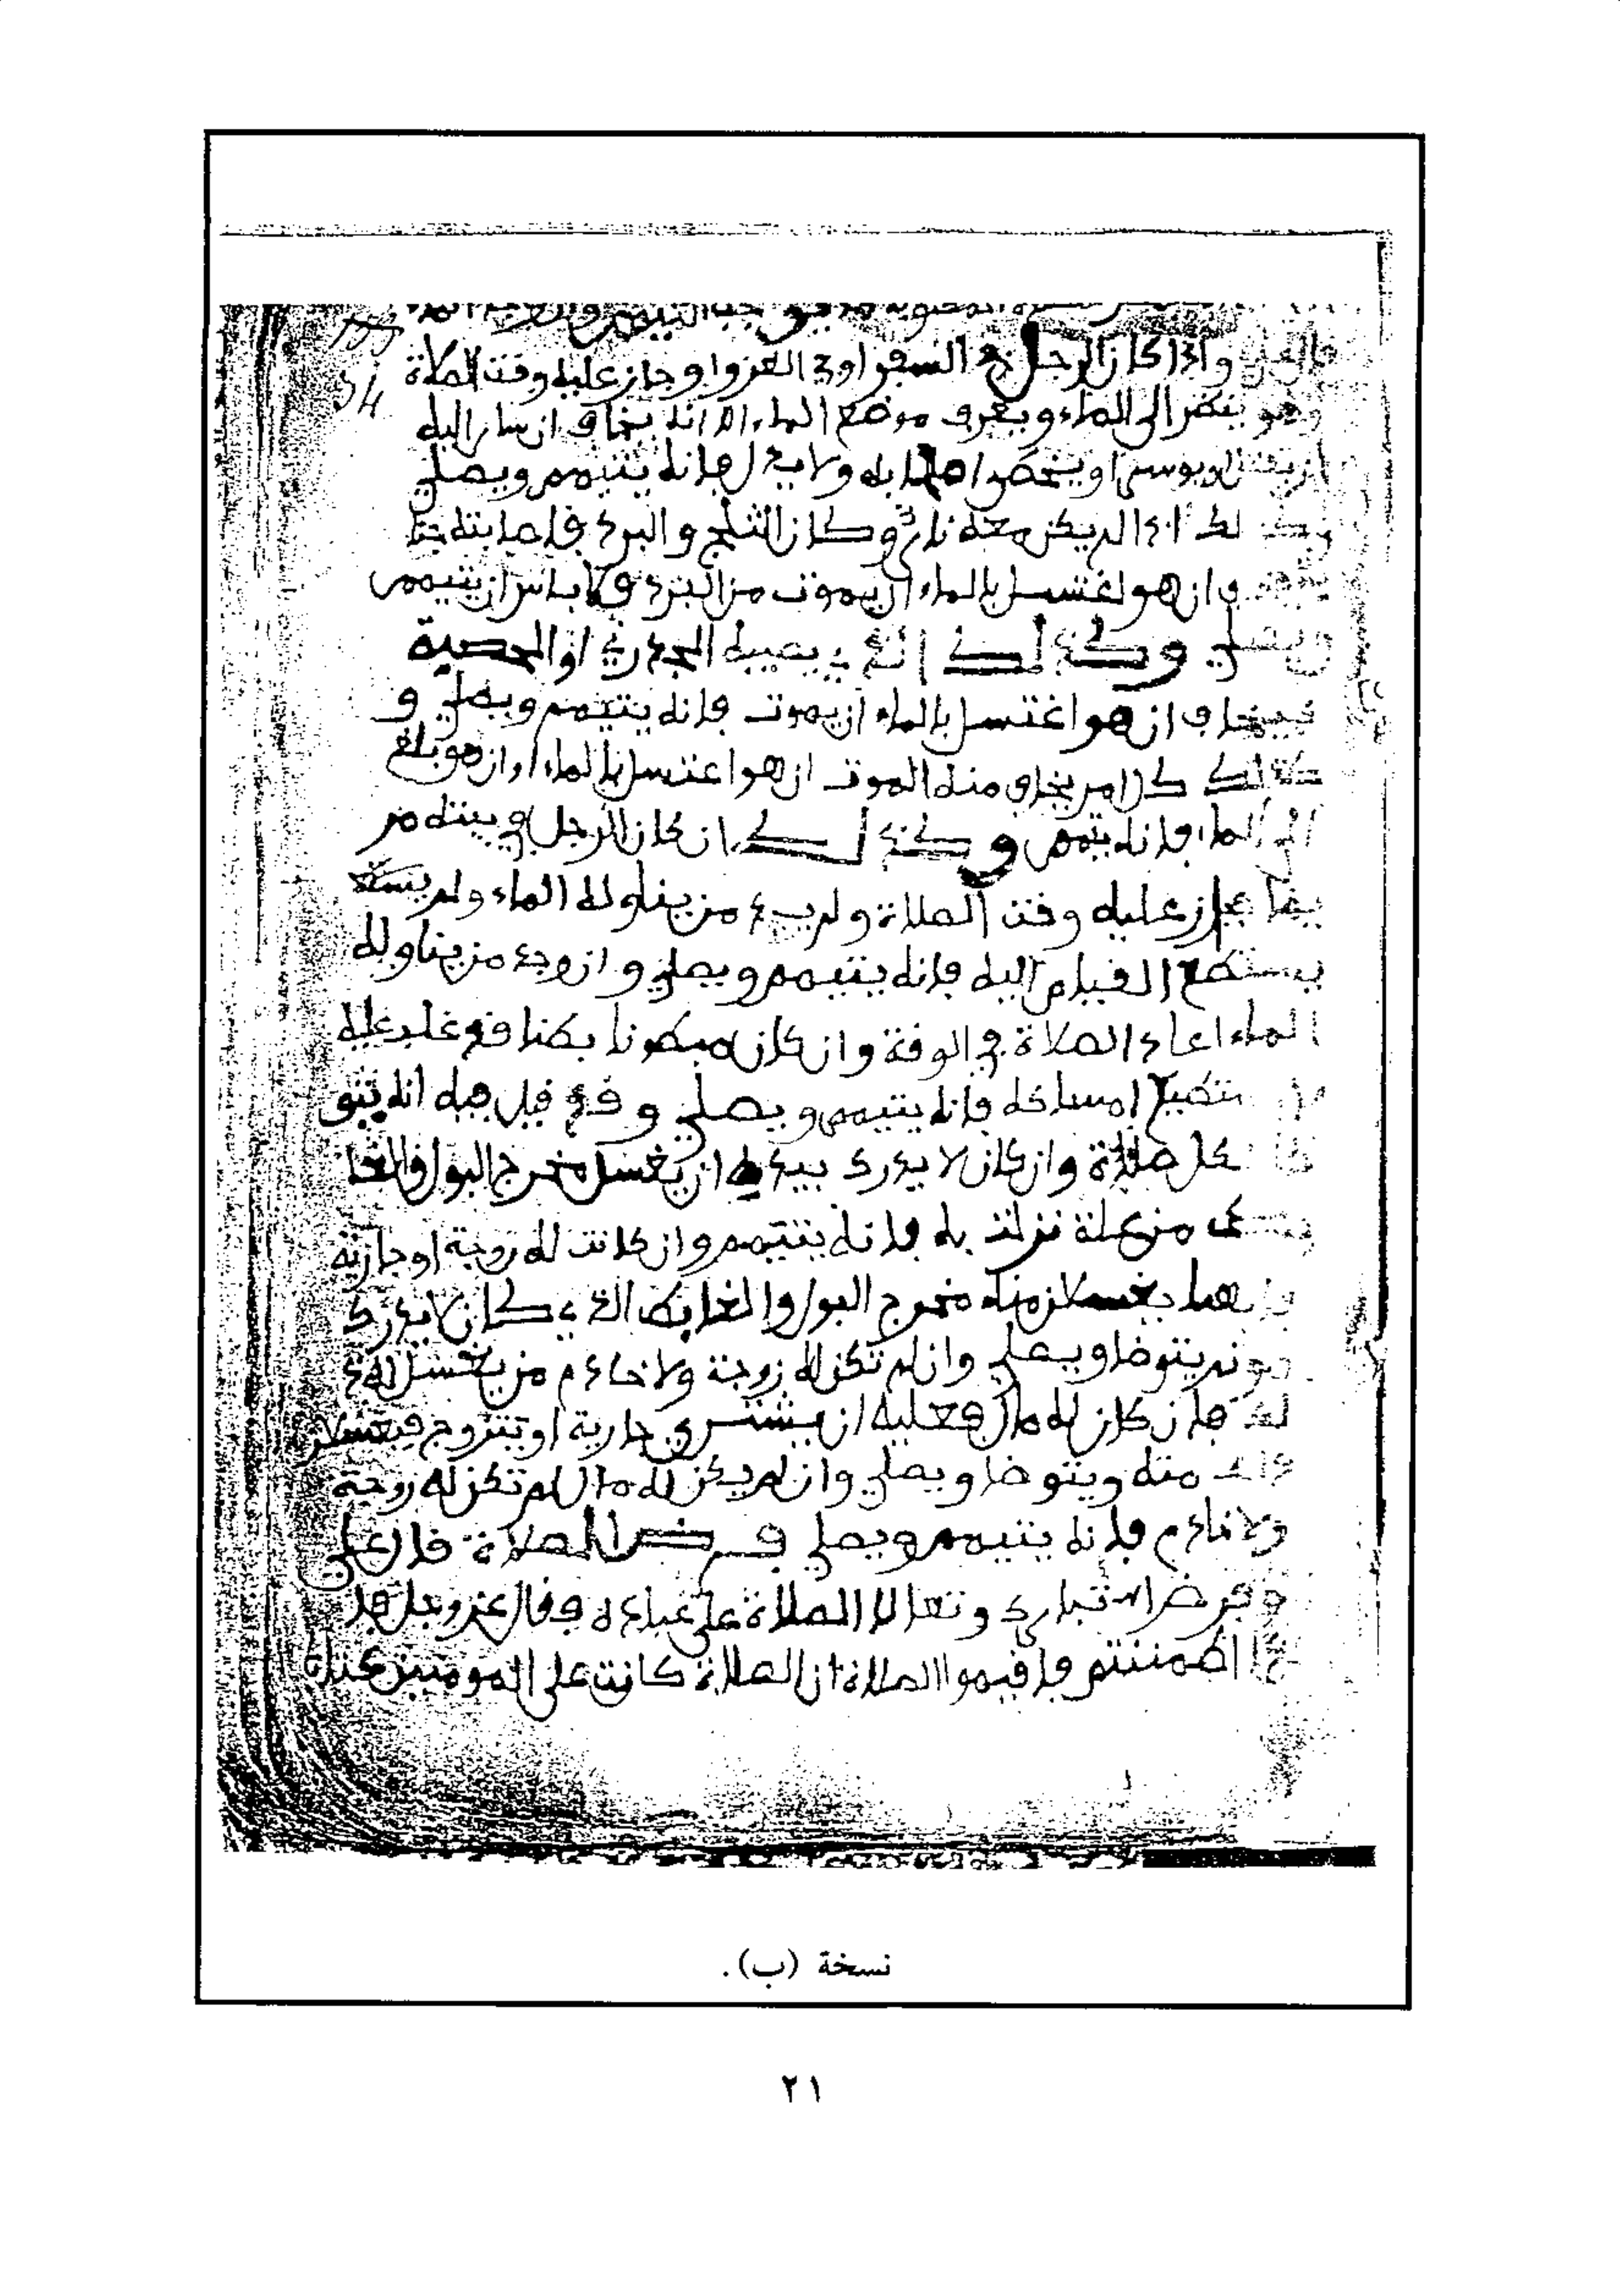 واذا كان الرجل في السفر او في الغزو او جاز عليه وقت الصلاة
وهو ينضر الى الماء ويعرف موضع الماء الا انه يخاف ان سار اليه
او ولا يدخل فانه يتيمم ويصلي
اذا لم يكن معه نار وكان الثلج والبرد فاصابته
ان هو اغتسل بالماء ان يموت من البرد فلا باس ان يتيمم
ويصلي وكذلك الذي يصيبه الجدري او الحصبة
فيخاف ان هو اغتسل بالماء ان يموت فانه يتيمم ويصلي و
كذلك كل امر يخاف منه الموت ان هو اغتسل بالماء وان هو بلغ
الى الماء فانه يتيمم وكذلك ان كان الرجل في بيته مر
يضا فجاز عليه وقت الصلاة ولم يجد من يناوله الماء ولم يسته
يستطع القيام اليه فانه يتيمم ويصلي وان وجد من يناوله
الماء اعاد الصلاة في الوقة وان كان مبطونا بطنا قد غلب عليه
امساكه فانه يتيمم ويصلي وقد قيل فيه انه يتو
ضا لكل صلاة وان كان لا يدرك بيده ان يغسل مخرج البول والغا
من علة نزلت به فانه يتيمم وان كانت له زوجة او جارية
يغسلان منه مخرج البول والغايط الذي كان لا يدرك
هو ثم يتوضا ويصلي وان لم تكن له زوجة ولا خادم من يغسل له ذ
لك فان كان له مال فعليه ان يشتري جارية او يتزوج فيغسلان
ذلك منه ويتوضا ويصلي وان لم يكن له مال لم تكن له زوجة
ولا خادم فانه يتيمم ويصلي فرض الصلاة قال علي
وفرض الله تبارك وتعالا الصلاة على عباده فقال عز وجل فا
ذا اطمننتم فاقيموا الصلاة ان الصلاة كانت على المومنين كتابا
نسخة (ب).
٢١